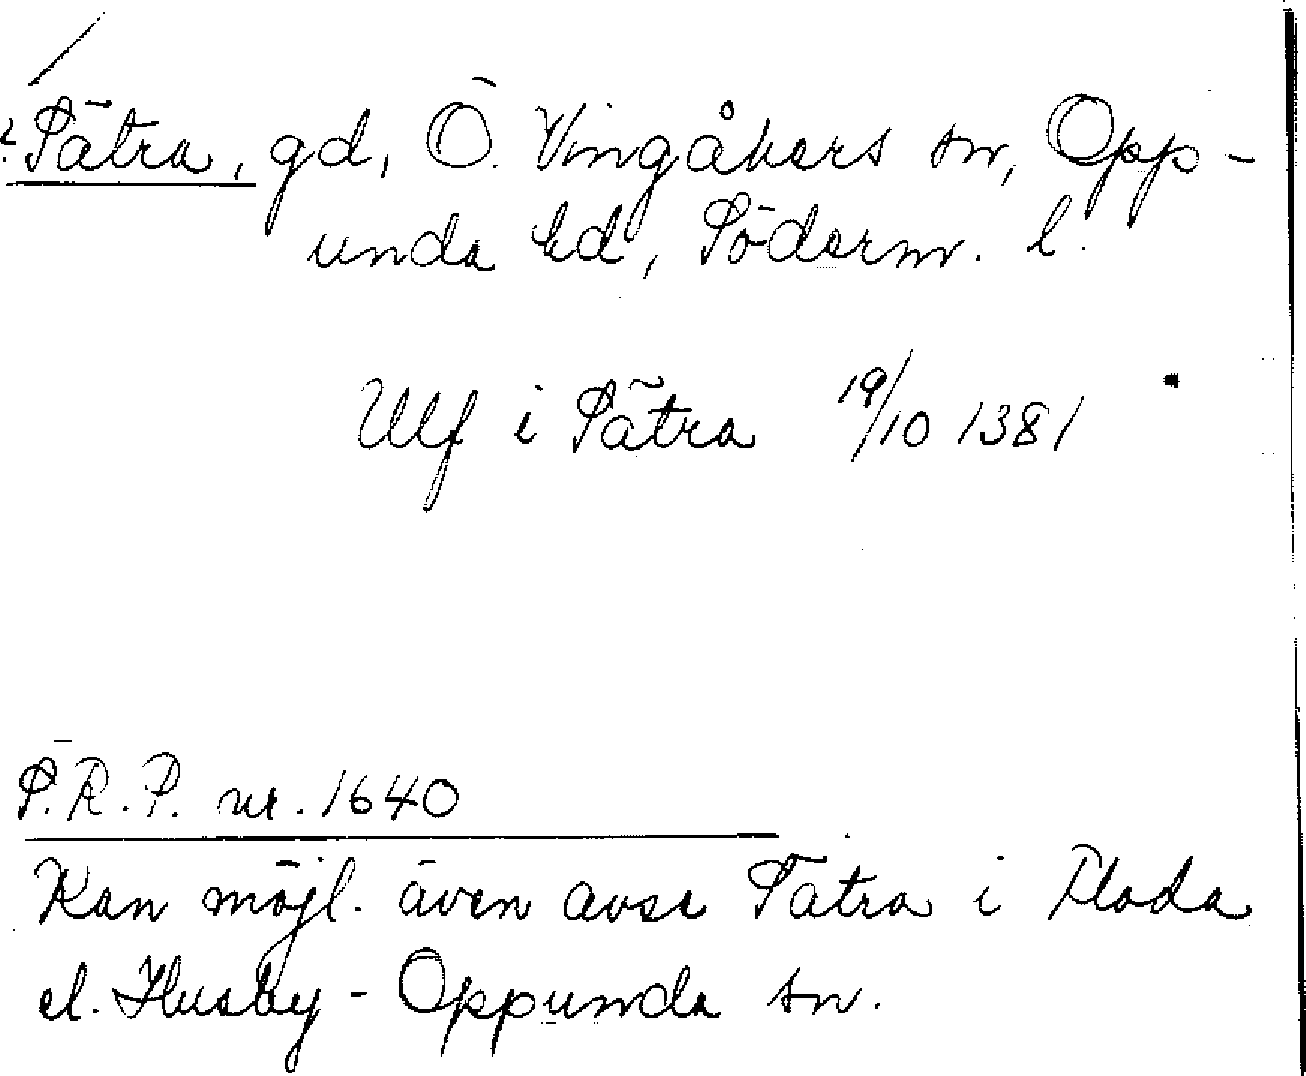 ? Sätra, gd, Ö. Vingåkers sn, Opp-
unda hd, Söderm. l.
Ulf i Sätra 19/10 1381
S.R.P. nr. 1640
Kan möjl. även avse Sätra i Floda
el. Husby-Oppunda sn.